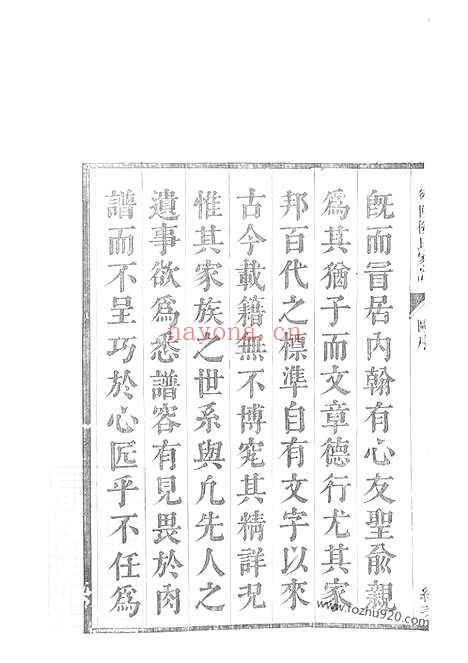 既而冒居內翰有心友聖兪親
爲其猶子而文章德行尤其家
邦百代之標準自有文字以來
古今載籍無不博究其精詳况
惟其家族之世系與凡先人之
遺事欲爲悉譜容有見畏於肉
譜而不呈巧於心匠乎不任爲
nayona.cn